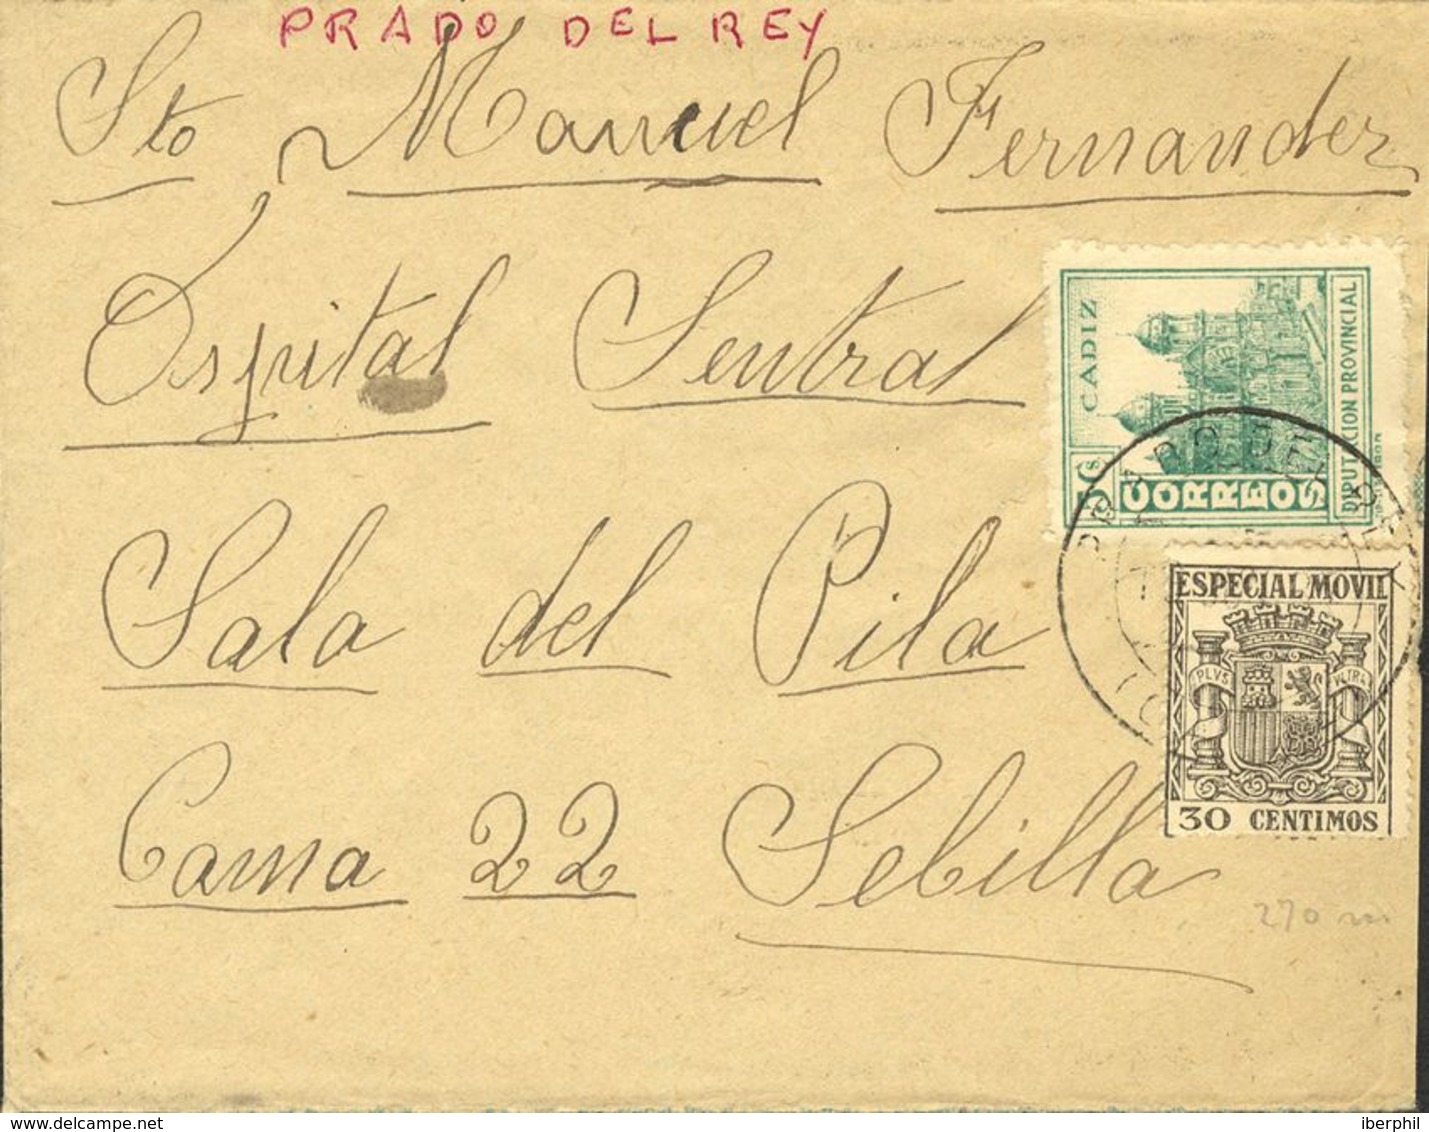 PRADO DEL REY
Sto Manuel Fernandez
Ospital Sentral
CADIZ
DIPUTACION PROVINCIAL
5 Cs
CORREOS
PRADO DEL REY
Sala del Pila
ESPECIAL MOVIL
PLVS VLTRA
30 CENTIMOS
Cama 22 Sebilla
270
www.delcampe.net
iberphil